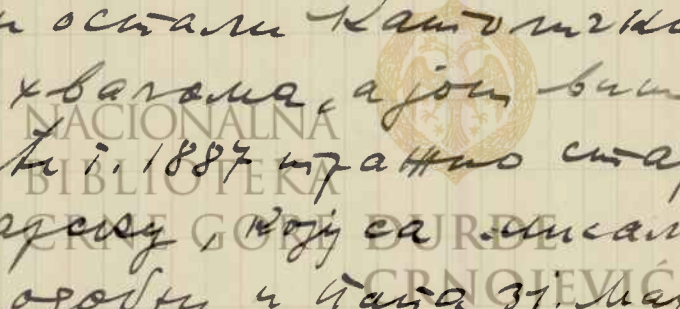 и остали Католичко
хвалома, а још виш
ћи г. 1887 тражио ста
арску, коју са мисал
одобри и Папа 31. Мар
NACIONALNA
BIBLIOTEKA
CRNE GORE ĐURĐE
CRNOJEVIĆ